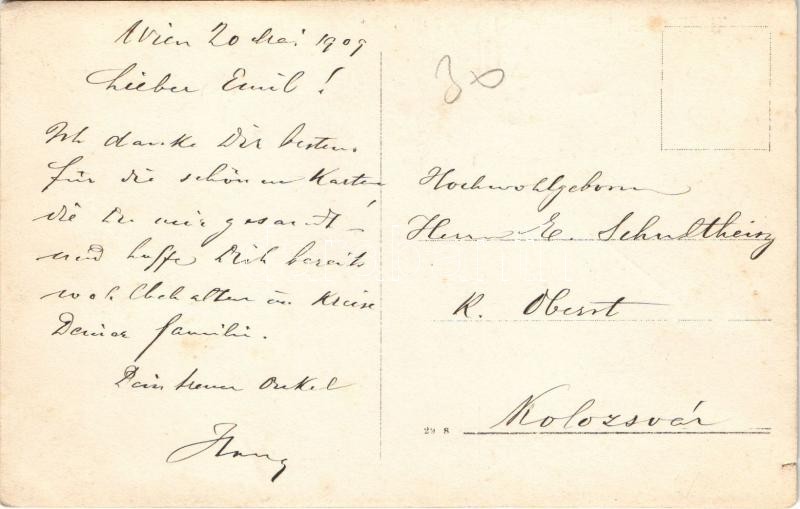 Wien 20 Mai 1909
Lieber Emil!
Ich danke Dir bestens
für die schönen Karten
die Du mir gesandt –
und hoffe Dich bereits
wohlbehalten im Kreise
Deiner Familie.
Dein treuer Onkel
30
Hochwohlgeboren
Herrn E. Schultheisz
K. Oberst
29 8 Kolozsvár